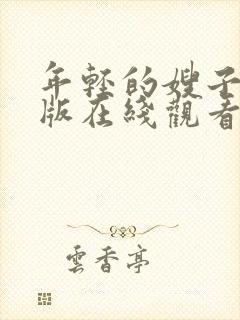 年輕的嫂子
版在綫觀看
雲香亭